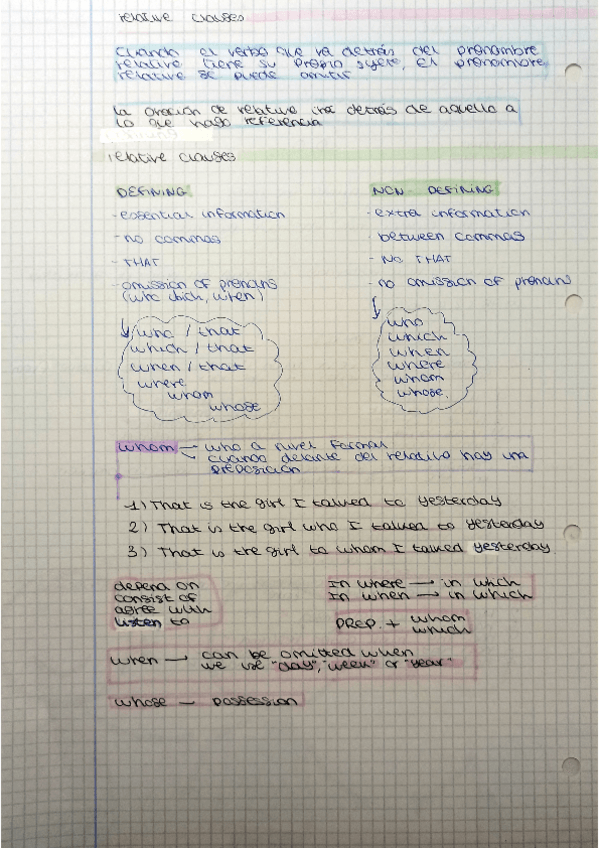 relative clauses
Cuando el verbo que va detrás del pronombre
relative tiene su propio sujeto, el pronombre
relative se puede omitir
la oración de relativo irá detrás de aquello a
lo que haga referencia
relative clauses
DEFINING
- essential information
- no commas
- THAT
- omission of pronouns
(who which, when)
who / that
which / that
when / that
where
whom
whose
NON - DEFINING
- extra information
- between commas
- NO THAT
- no omission of pronouns
who
which
when
where
whom
whose.
whom — who a nivel formal
cuando delante del relativo hay una
preposición
1) That is the girl I talked to yesterday
2) That is the girl who I talked to yesterday
3) That is the girl to whom I talked yesterday
depend on
consist of
agree with
listen to
In where → in which
In when → in which
PREP. + whom
which
when → can be omitted when
we use "day", "week" or "year"
whose — possession